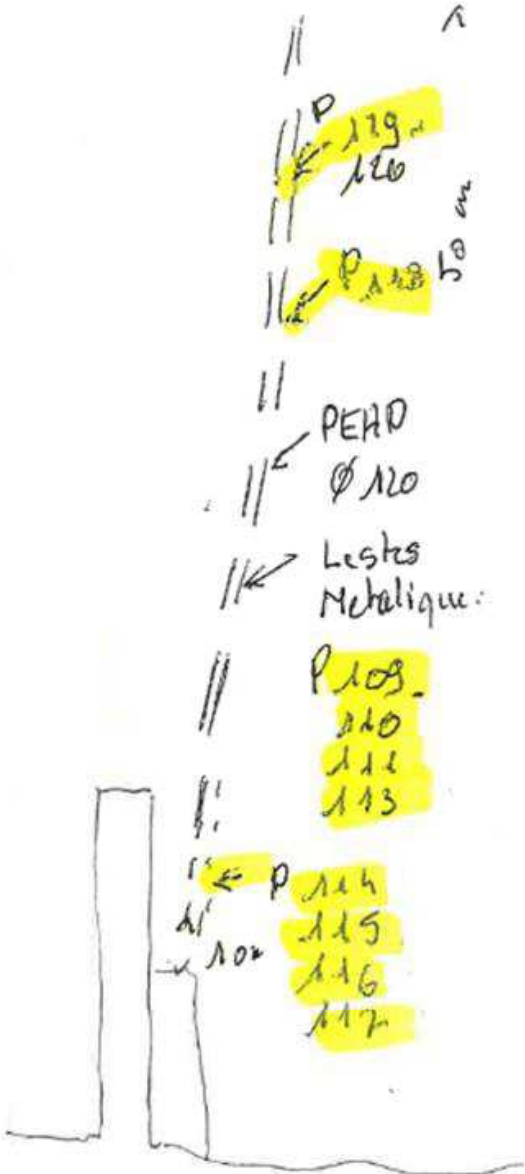 P
119
120
P 118
PEHD
Ø 120
Lestes
Metalique.
P 109
110
111
113
P 114
115
116
117